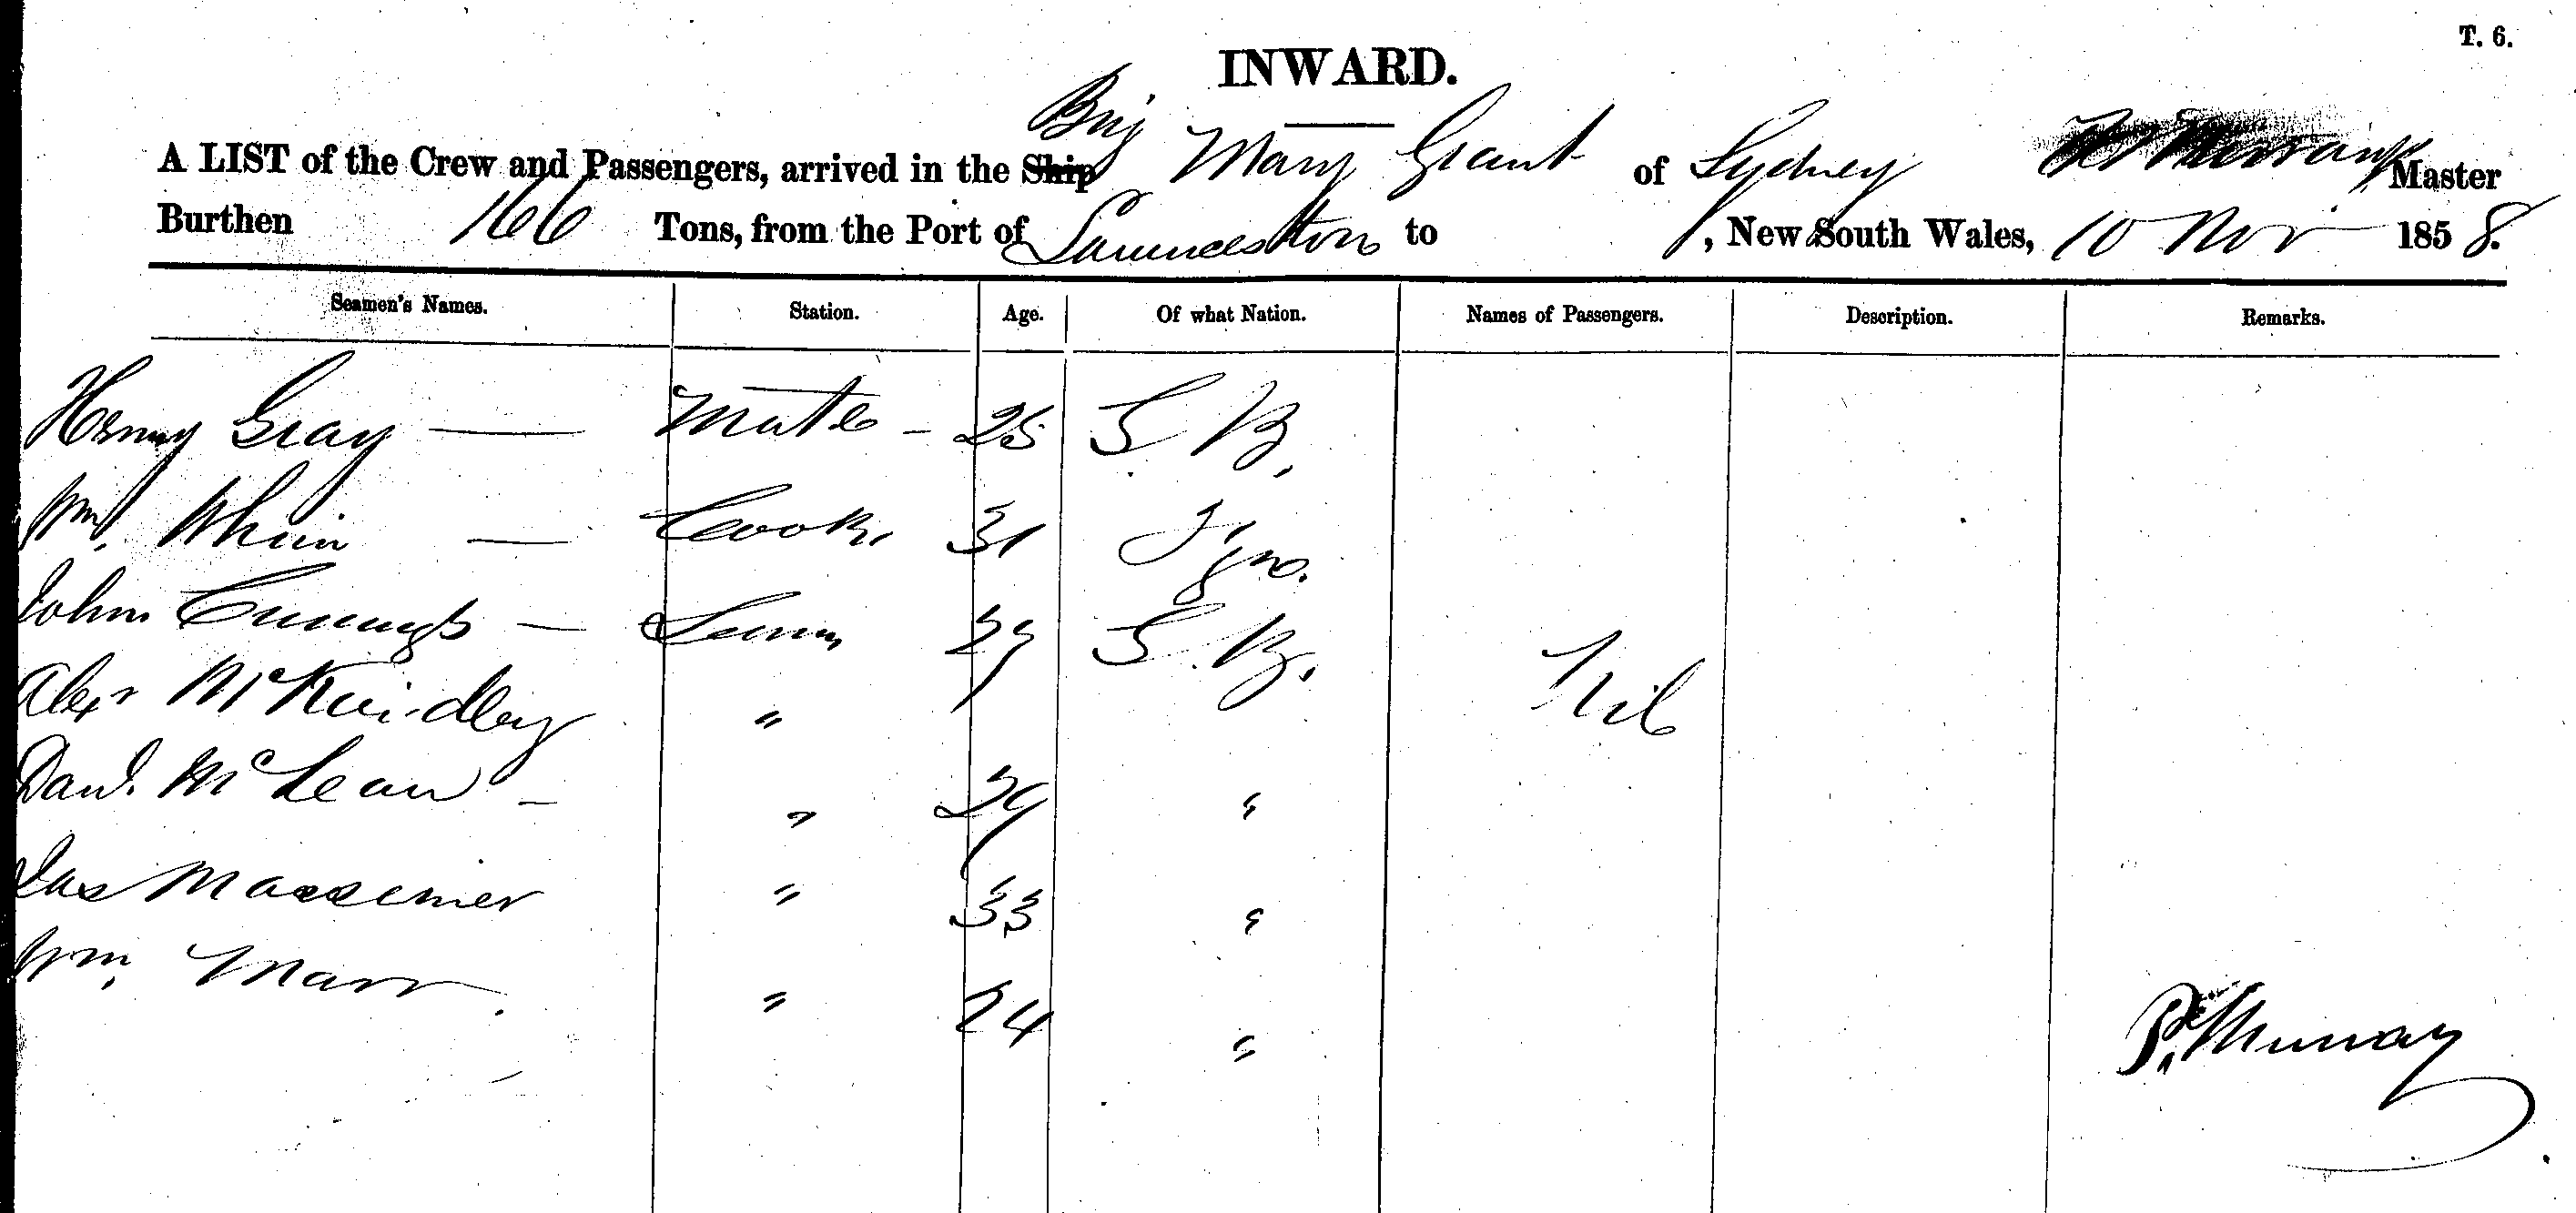 T. 6.
INWARD.
Brig
A LIST of the Crew and Passengers, arrived in the Ship Mary Grant of Sydney Murray Master
Burthen 166 Tons, from the Port of Launceston to , New South Wales, 10 Nov 1858.
Seamen's Names. Station. Age. Of what Nation. Names of Passengers. Description. Remarks.
Henry Gray — Mate - 25 G B.
Wm. — Cook 31
John — 29 G B.
Alexr McKindley " Nil
Danl. McLean - " 29 "
Jas " 33 "
Wm. Marr " 24 "
P. Murray